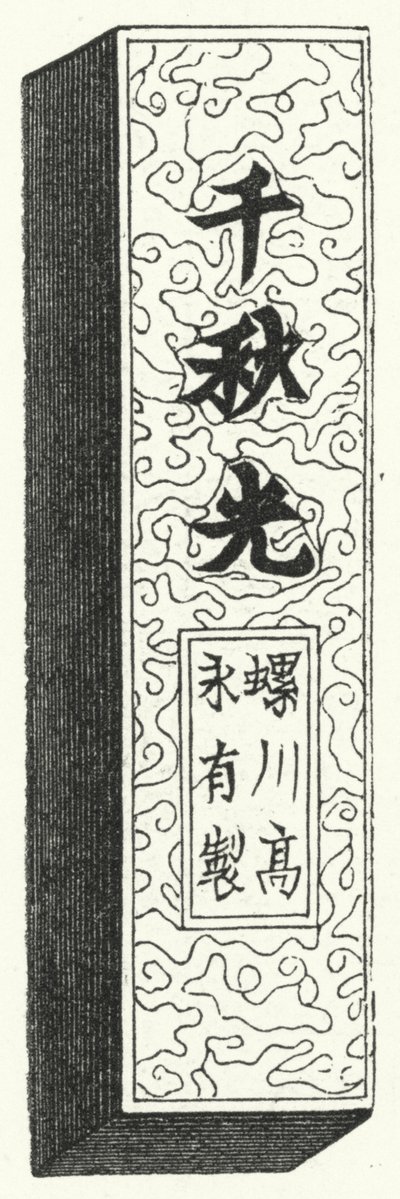 千秋光
螺川高
永有製